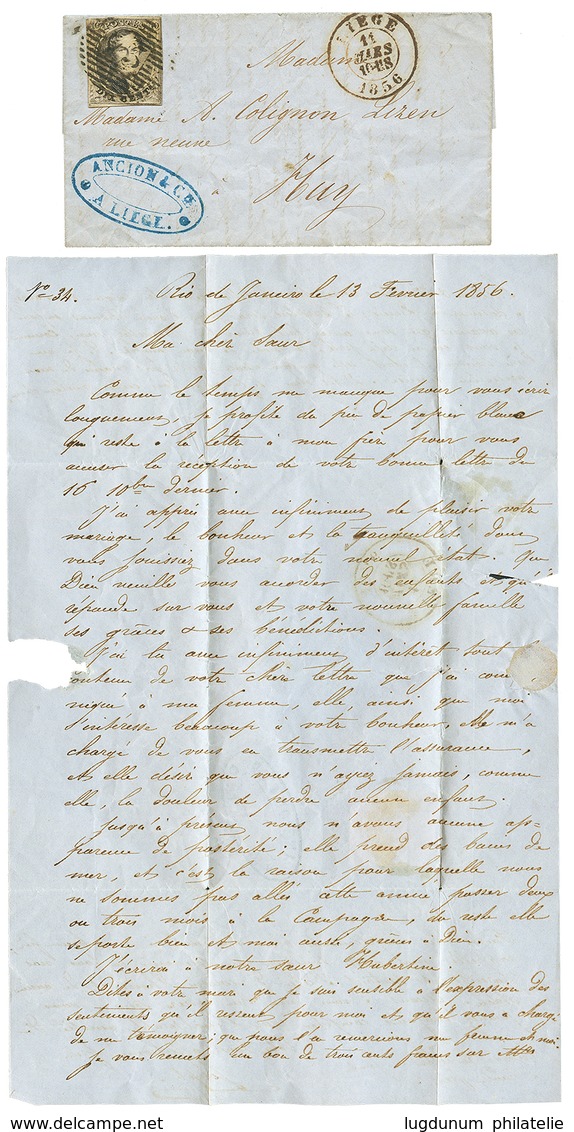 LIEGE
11
MARS
10-11S
1856
Madame
Madame A. Colignon Lizen
rue neuve
Huy
ANCION & CIE
A LIEGE.
No 34. Rio de Janeiro le 13 Fevrier 1856.
Ma cher Sœur
Comme le temps me manque pour vous écrire
longuement, je profite du peu de papier blanc
qui reste à la lettre à mon frère pour vous
accuser la réception de votre bonne lettre du
16 10bre dernier.
J'ai appris avec infiniment de plaisir votre
mariage, le bonheur et la tranquillité dont
vous jouissiez dans votre nouvel état. Que
Dieu veuille vous accorder des enfants et qu'il
répande sur vous et votre nouvelle famille
ses grâces & ses bénédictions.
J'ai lu avec infiniment d'intérêt tout le
contenu de votre chère lettre que j'ai com
niqué à ma femme, elle, ainsi que moi
s'intéresse beaucoup à votre bonheur, elle m'a
chargé de vous en transmettre l'assurance,
et elle désir que vous n'ayiez jamais, comme
elle, la douleur de perdre aucun enfant.
Jusqu'à présent nous n'avons aucune ap=
parence de postérité; elle prend des bains de
mer, et c'est la raison pour laquelle nous
ne sommes pas allés cette année passer deux
ou trois mois à la Campagne, du reste elle
se porte bien et moi aussi, grâces à Dieu.
J'écrirai à notre sœur Hubertine
Dites à votre mari que je suis sensible à l'expression des
sentements qu'il ressent pour moi et qu'il vous a chargé
de me témoigner; que nous l'en remercions ma femme et moi.
Je vous remets un bon de trois cents francs sur
www.delcampe.net
lugdunum philatelie